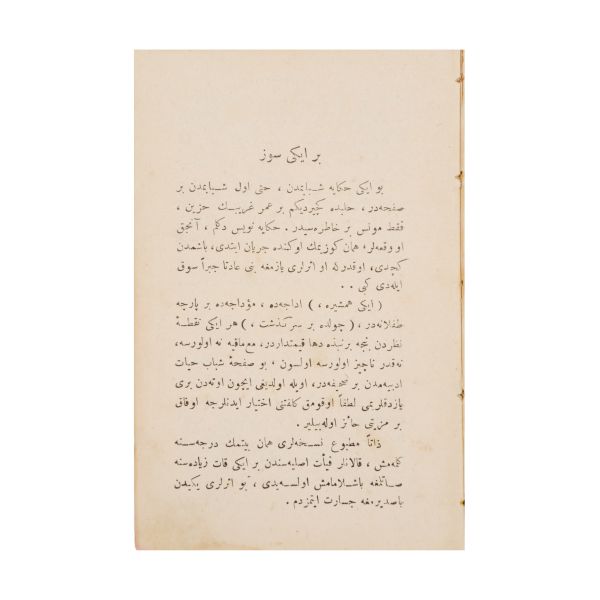 بر ایكی سوز
بو ایكی حكایه شبابمدن ، حتی اول شبابمدن بر
صفحه‌در ، حلبده كچیردیكم بر عمر غریبك حزین ،
فقط مونس بر خاطره‌سیدر . حكایه نویس دكلم ، آنجق
او وقعه‌لر ، همان كوزیمك اوكنده جریان ایتدی ، باشمدن
كچدی ، اوقدر كه او اثرلری یازمغه بنی عادتا جبراً سوق
ایله‌دی كبی . .
( ایكی همشیره ، ) اداجه‌ده ، مؤداجه‌ده بر پارچه
طفلانه‌در ، ( چولده بر سركذشت ، ) هر ایكی نقطهٔ
نظردن بنجه بر نبذه دها قیمتداردر ، مع مافیه نه اولورسه ،
نه‌قدر ناچیز اولورسه اولسون ، بو صفحهٔ شباب حیات
ادبیه‌مدن بر صحیفه‌در ، اویله اولدیغی ایچون اوته‌دن بری
یازدقلریمی لطفاً اوقومق كلفتنی اختیار ایدنلرجه اوفاق
بر مزیتی حائز اوله‌بیلیر .
ذاتاً مطبوع نسخه‌لری همان بیتمك درجه‌سنه
كلمه‌مش ، قالانلر فیأت اصلیه‌سندن بر ایكی قات زیاده‌سنه
صاتلغه باشلامامش اولسه‌یدی ، بو اثرلری یكیدن
باصدیرمغه جسارت ایتمزدم .